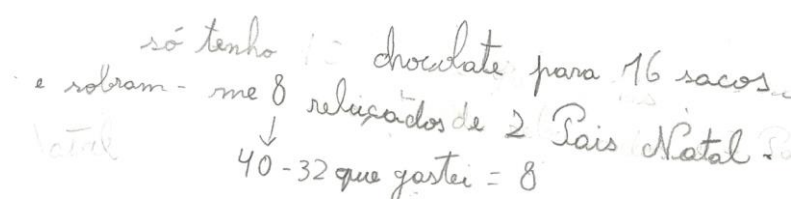 só tenho chocolate para 16 sacos.
e sobram-me 8 reluçados de 2 Pais Natal.
↓
40-32 que gastei = 8